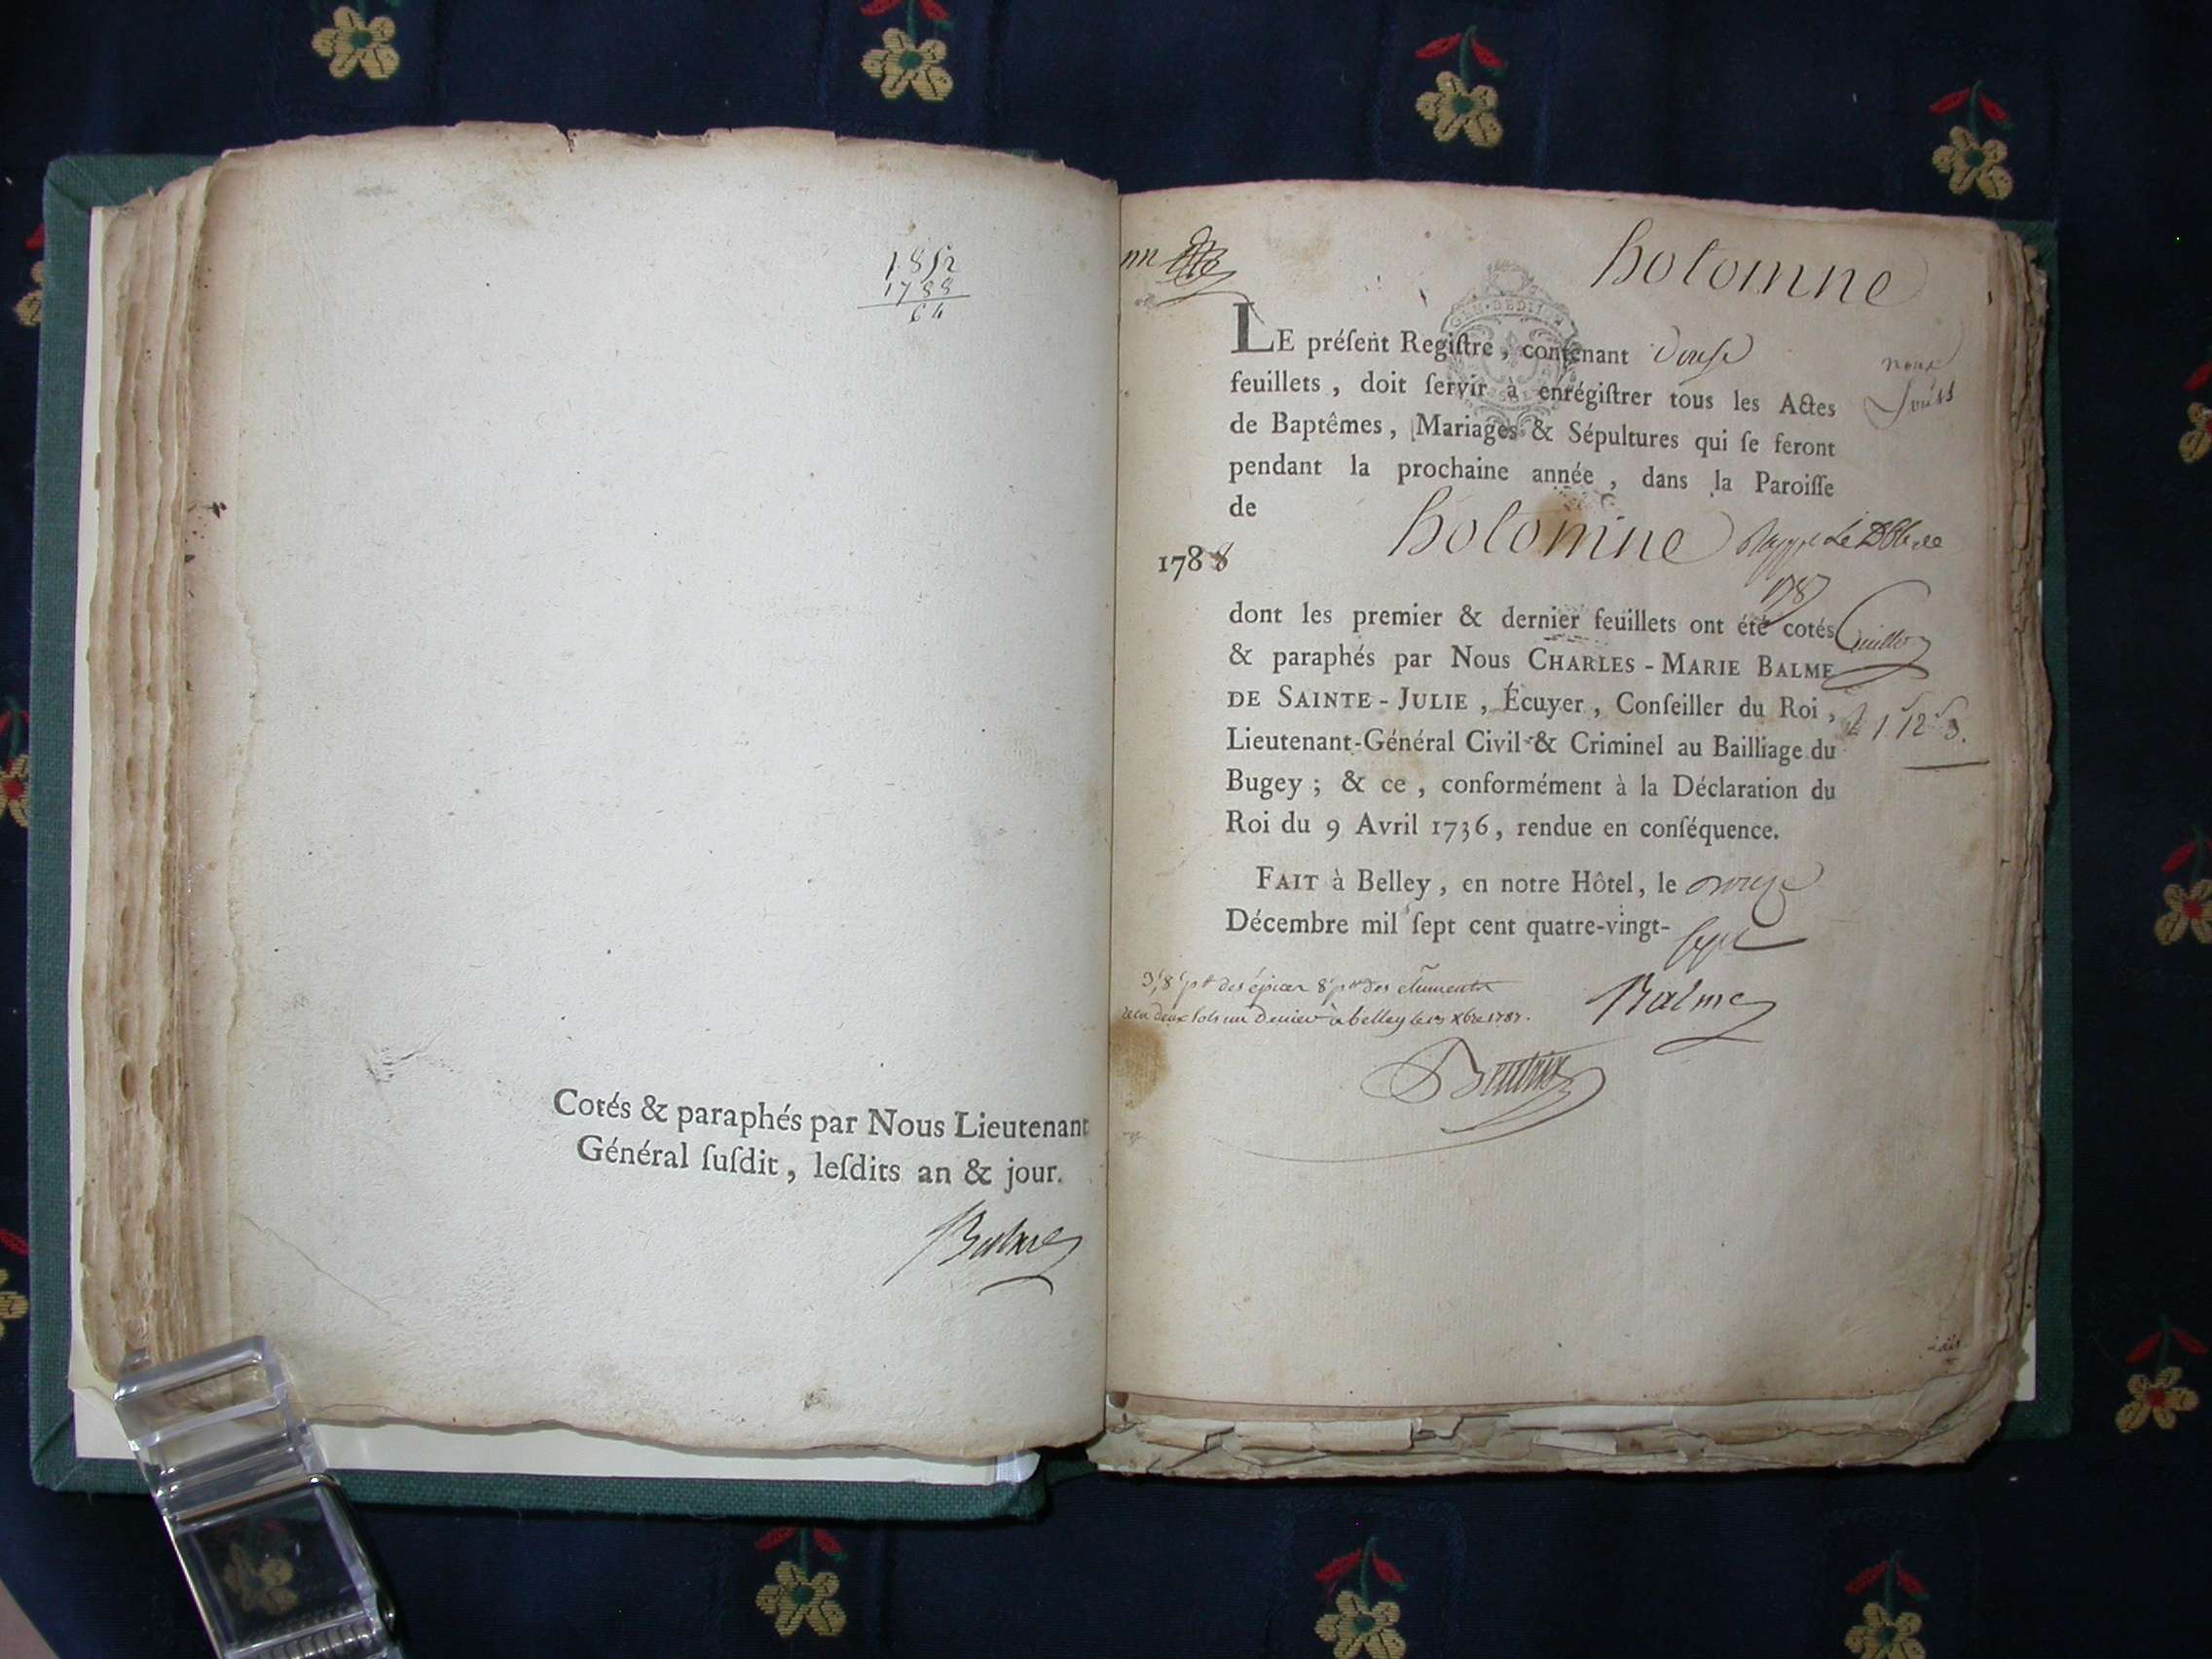 1852
1788
64
Cotés & paraphés par Nous Lieutenant
Général ſuſdit, leſdits an & jour.
Balme
hotonne
GEN·DE DIJON
LE préſent Regiſtre, contenant douse
feuillets, doit ſervir à enrégiſtrer tous les Actes
de Baptêmes, Mariages & Sépultures qui ſe feront
pendant la prochaine année, dans la Paroiſſe
de hotonne
1788
1787
dont les premier & dernier feuillets ont été cotés
& paraphés par Nous CHARLES-MARIE BALME
DE SAINTE-JULIE, Écuyer, Conſeiller du Roi,
Lieutenant-Général Civil & Criminel au Bailliage du
Bugey; & ce, conformément à la Déclaration du
Roi du 9 Avril 1736, rendue en conſéquence.
FAIT à Belley, en notre Hôtel, le onze
Décembre mil ſept cent quatre-vingt-sept
Balme
deux sols un denier à belley le 13 xbre 1787.